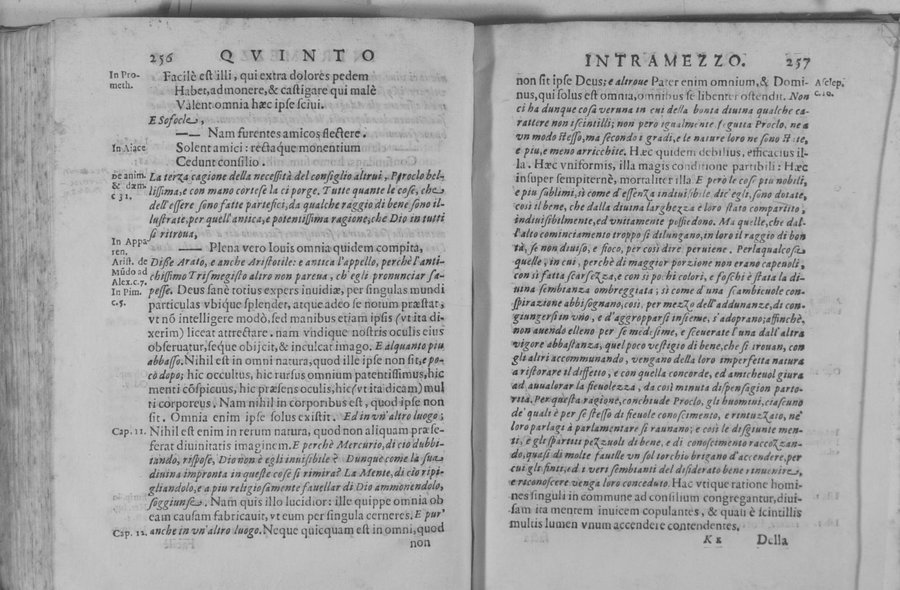 256 QVINTO
In Prometh.
Facilè est illi, qui extra dolorès pedem
Habet, admonere, & castigare qui malè
Valent omnia hæc ipse sciui.
E Sofocle,
—— Nam furentes amicos flectere.
In Aiace
Solent amici: rectaque monentium
Cedunt consilio.
De anim. & dæm. c 31.
La terza cagione della necessità del consiglio altrui, Proclo bel-
lissima, e con mano cortese la ci porge. Tutte quante le cose, che
dell'essere sono fatte partefici, da qualche raggio di bene sono il-
lustrate, per quell'antica, e potentissima ragione, che Dio in tutti
si ritroua,
In Apparen.
—— Plena vero Iouis omnia quidem compita,
Arist. de Mūdo ad Alex. c. 7.
Disse Arato, e anche Aristotile: e antica l'appello, perchè l'anti-
chissimo Trismegisto altro non pareua, ch'egli pronunciar sa-
In Pim. c. 5.
pesse. Deus sanè totius expers inuidiæ, per singulas mundi
particulas vbique splendet, atque adeò se notum præstat,
vt nō intelligere modò, sed manibus etiam ipsis (vt ita di-
xerim) liceat attrectare. nam vndique nostris oculis eius
obseruatur, seque obijcit, & inculcat imago. E alquanto piu
abbasso. Nihil est in omni natura, quod ille ipse non sit, e po-
cò dopo; hic occultus, hic rursus omnium patentissimus, hic
menti cōspicuus, hic præsens oculis, hic (vt ita dicam) mul
ti corporeus. Nam nihil in corporibus est, quod ipse non
sit. Omnia enim ipse solus existit. Ed in vn'altro luogo;
Cap. 11.
Nihil est enim in rerum natura, quod non aliquam præse-
ferat diuinitatis imaginem. E perchè Mercurio, di cio dubbi-
tando, rispose, Dio non è egli inuisibile? Dunque come la sua
diuina impronta in queste cose si rimira? La Mente, di cio ripi-
gliandolo, e a piu religiosamente fauellar di Dio ammonendolo,
soggiunse. Nam quis illo lucidior: ille quippe omnia ob
eam causam fabricauit, vt eum per singula cerneres. E pur'
Cap. 12.
anche in vn'altro luogo. Neque quicquam est in omni, quod
non
INTRAMEZZO. 257
non sit ipse Deus; e altroue Pater enim omnium, & Domi-
Asclep. c. 10.
nus, qui solus est omnia, omnibus se libenter ostendit. Non
ci ha dunque cosa veruna in cui della bontà diuina qualche ca-
rattere non iscintilli; non però igualmente segutta Proclo, ne a
vn modo stesso, ma secondo i gradi, e le nature loro ne sono state,
e piu, e meno arricchite. Hæc quidem debilius, efficacius il-
la. Hæc vniformis, illa magis conditione partibili: Hæc
insuper sempiternè, mortaliter illa. E però le cose piu nobili,
e piu sublimi, sì come d'essenza indiuisibile, dic'egli, sono dotate,
così il bene, che dalla diuina larghezza è loro stato compartito,
indiuisibilmente, ed vnitamente possedono. Ma quelle, che dal-
l'alto cominciamento troppo si dilungano, in loro il raggio di bon
tà, se non diuiso, e fioco, per così dire peruiene. Perlaqualcosa
quelle, in cui, perchè di maggior porzione non erano capeuoli,
con sì fatta scarsezza, e con sì pochi colori, e foschi è stata la di-
uina sembianza ombreggiata; sì come d'una scambieuole con-
spirazione abbisognano, così, per mezzo dell'addunanze, di con-
giungersi in vno, e d'aggropparsi insieme, s'adoprano; affinchè,
non auendo elleno per se medesime, e sceuerate l'una dall'altra
vigore abbastanza, quel poco vestigio di bene, che si trouan, con
gli altri accommunando, vengano della loro imperfetta natura
a ristorare il diffetto, e con quella concorde, ed amicheuol giura
ad auualorar la fieuolezza, da così minuta dispensagion parto-
rita. Per questa ragione, conchiude Proclo, gli huomini, ciascuno
de' quali è per se stesso di fieuole conoscimento, e rintuzzato, ne'
loro parlagi à parlamentare si raunano; e così le disgiunte men-
ti, e gli spartiti pezzuoli di bene, e di conoscimento raccozzan-
do, quasi di molte fauille vn sol torchio brigano d'accendere, per
cui gli finti, ed i veri sembianti del disiderato bene rinuenire,
e riconoscere venga loro conceduto. Hac vtique ratione homi-
nes singuli in commune ad consilium congregantur, diui-
sam ita mentem inuicem copulantes, & quasi è scintillis
multis lumen vnum accendere contendentes.
Kk Della